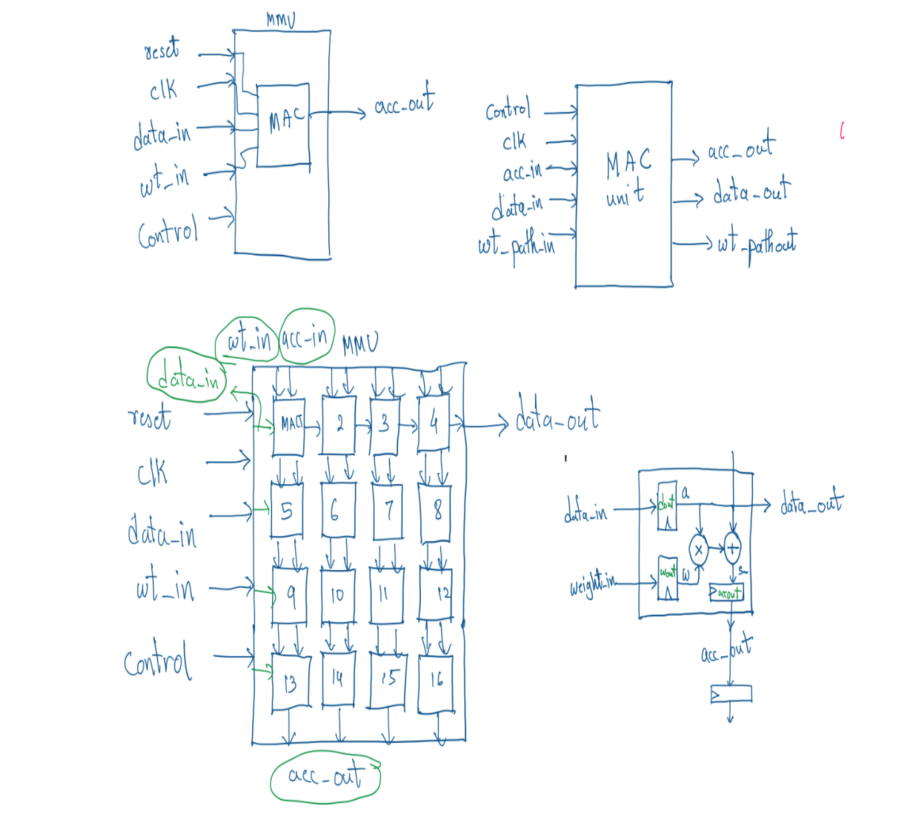 MMU
reset
clk
data_in
wt_in
Control
MAC
acc_out
Control
clk
acc_in
data_in
wt_path_in
MAC
unit
acc_out
data_out
wt_pathout
wt_in
acc_in
MMU
data_in
reset
clk
data_in
wt_in
Control
MAC
2
3
4
data_out
5
6
7
8
9
10
11
12
13
14
15
16
acc_out
data_in
dout
a
data_out
x
+
weight_in
wout
w
s
accout
acc_out